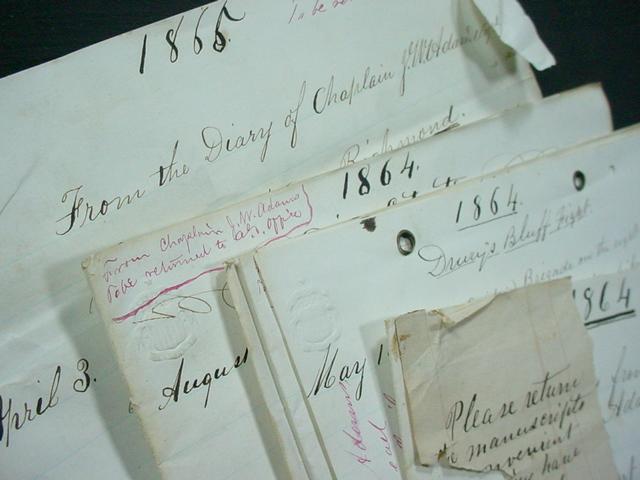 1865
To be
From the Diary of Chaplain J. W. Adams
Richmond.
April 3.
1864.
From Chaplain J. W. Adams
To be returned to
Office
Augus
1864.
Drury's Bluff Fight.
Brigade on the
May 1
Adams
1864
Please return
manuscripts
have